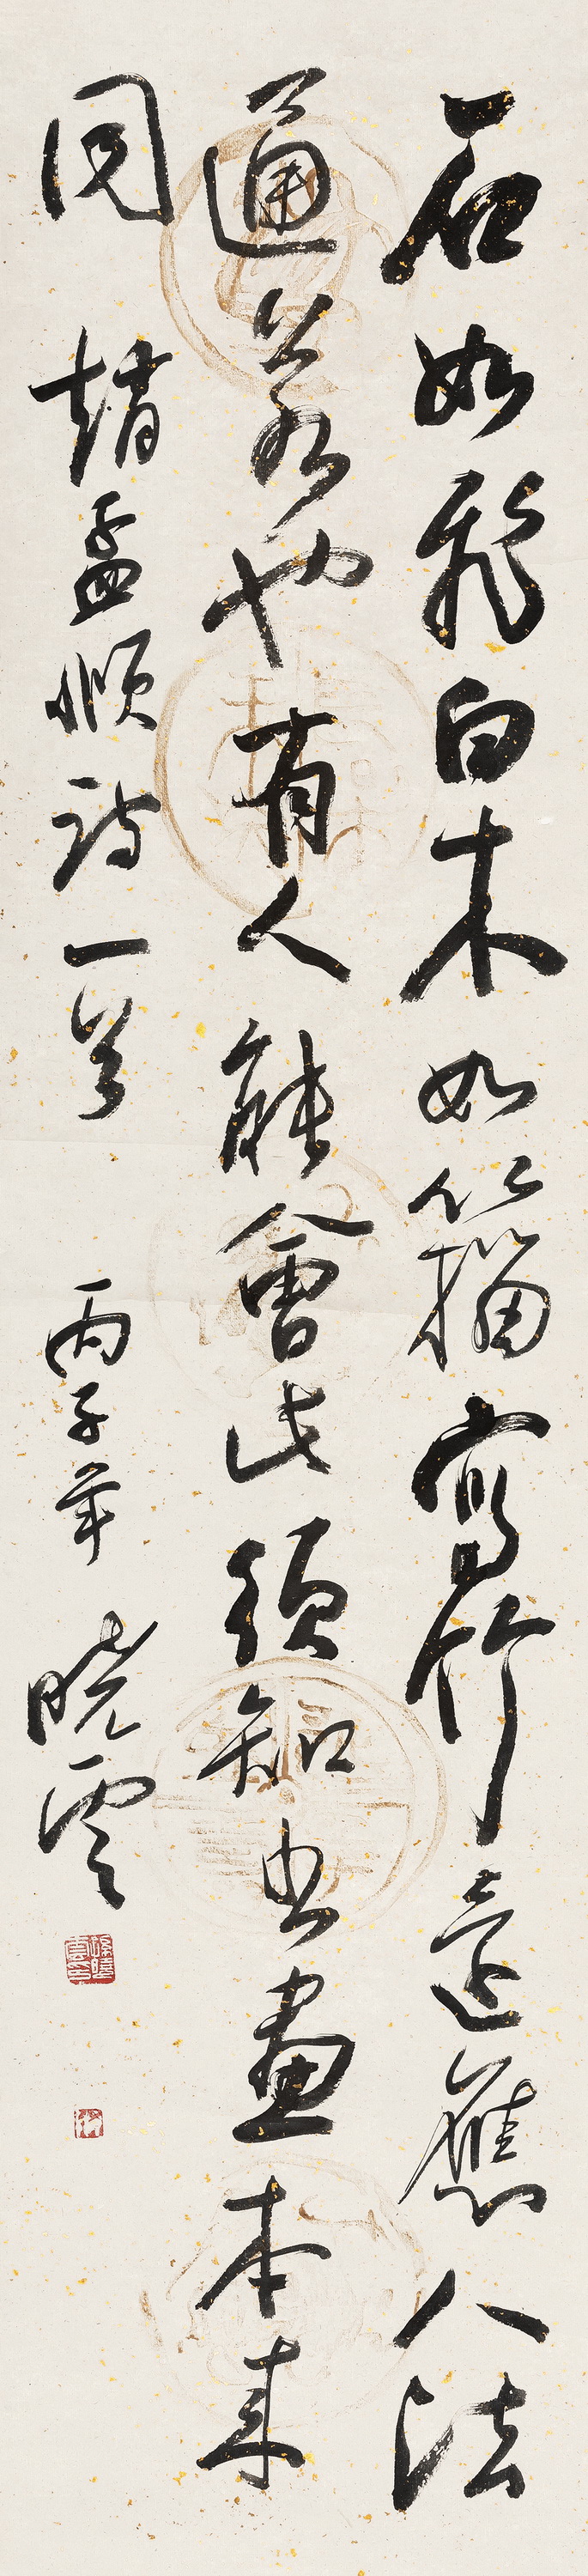 石如飛白木如籀寫竹還應八法
通若也有人能會此須知書畫本來
同 趙孟頫詩一首 丙子年 曉雲
孫曉雲印